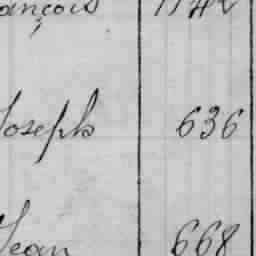 ançois 1142
Joseph 636
Jean 668